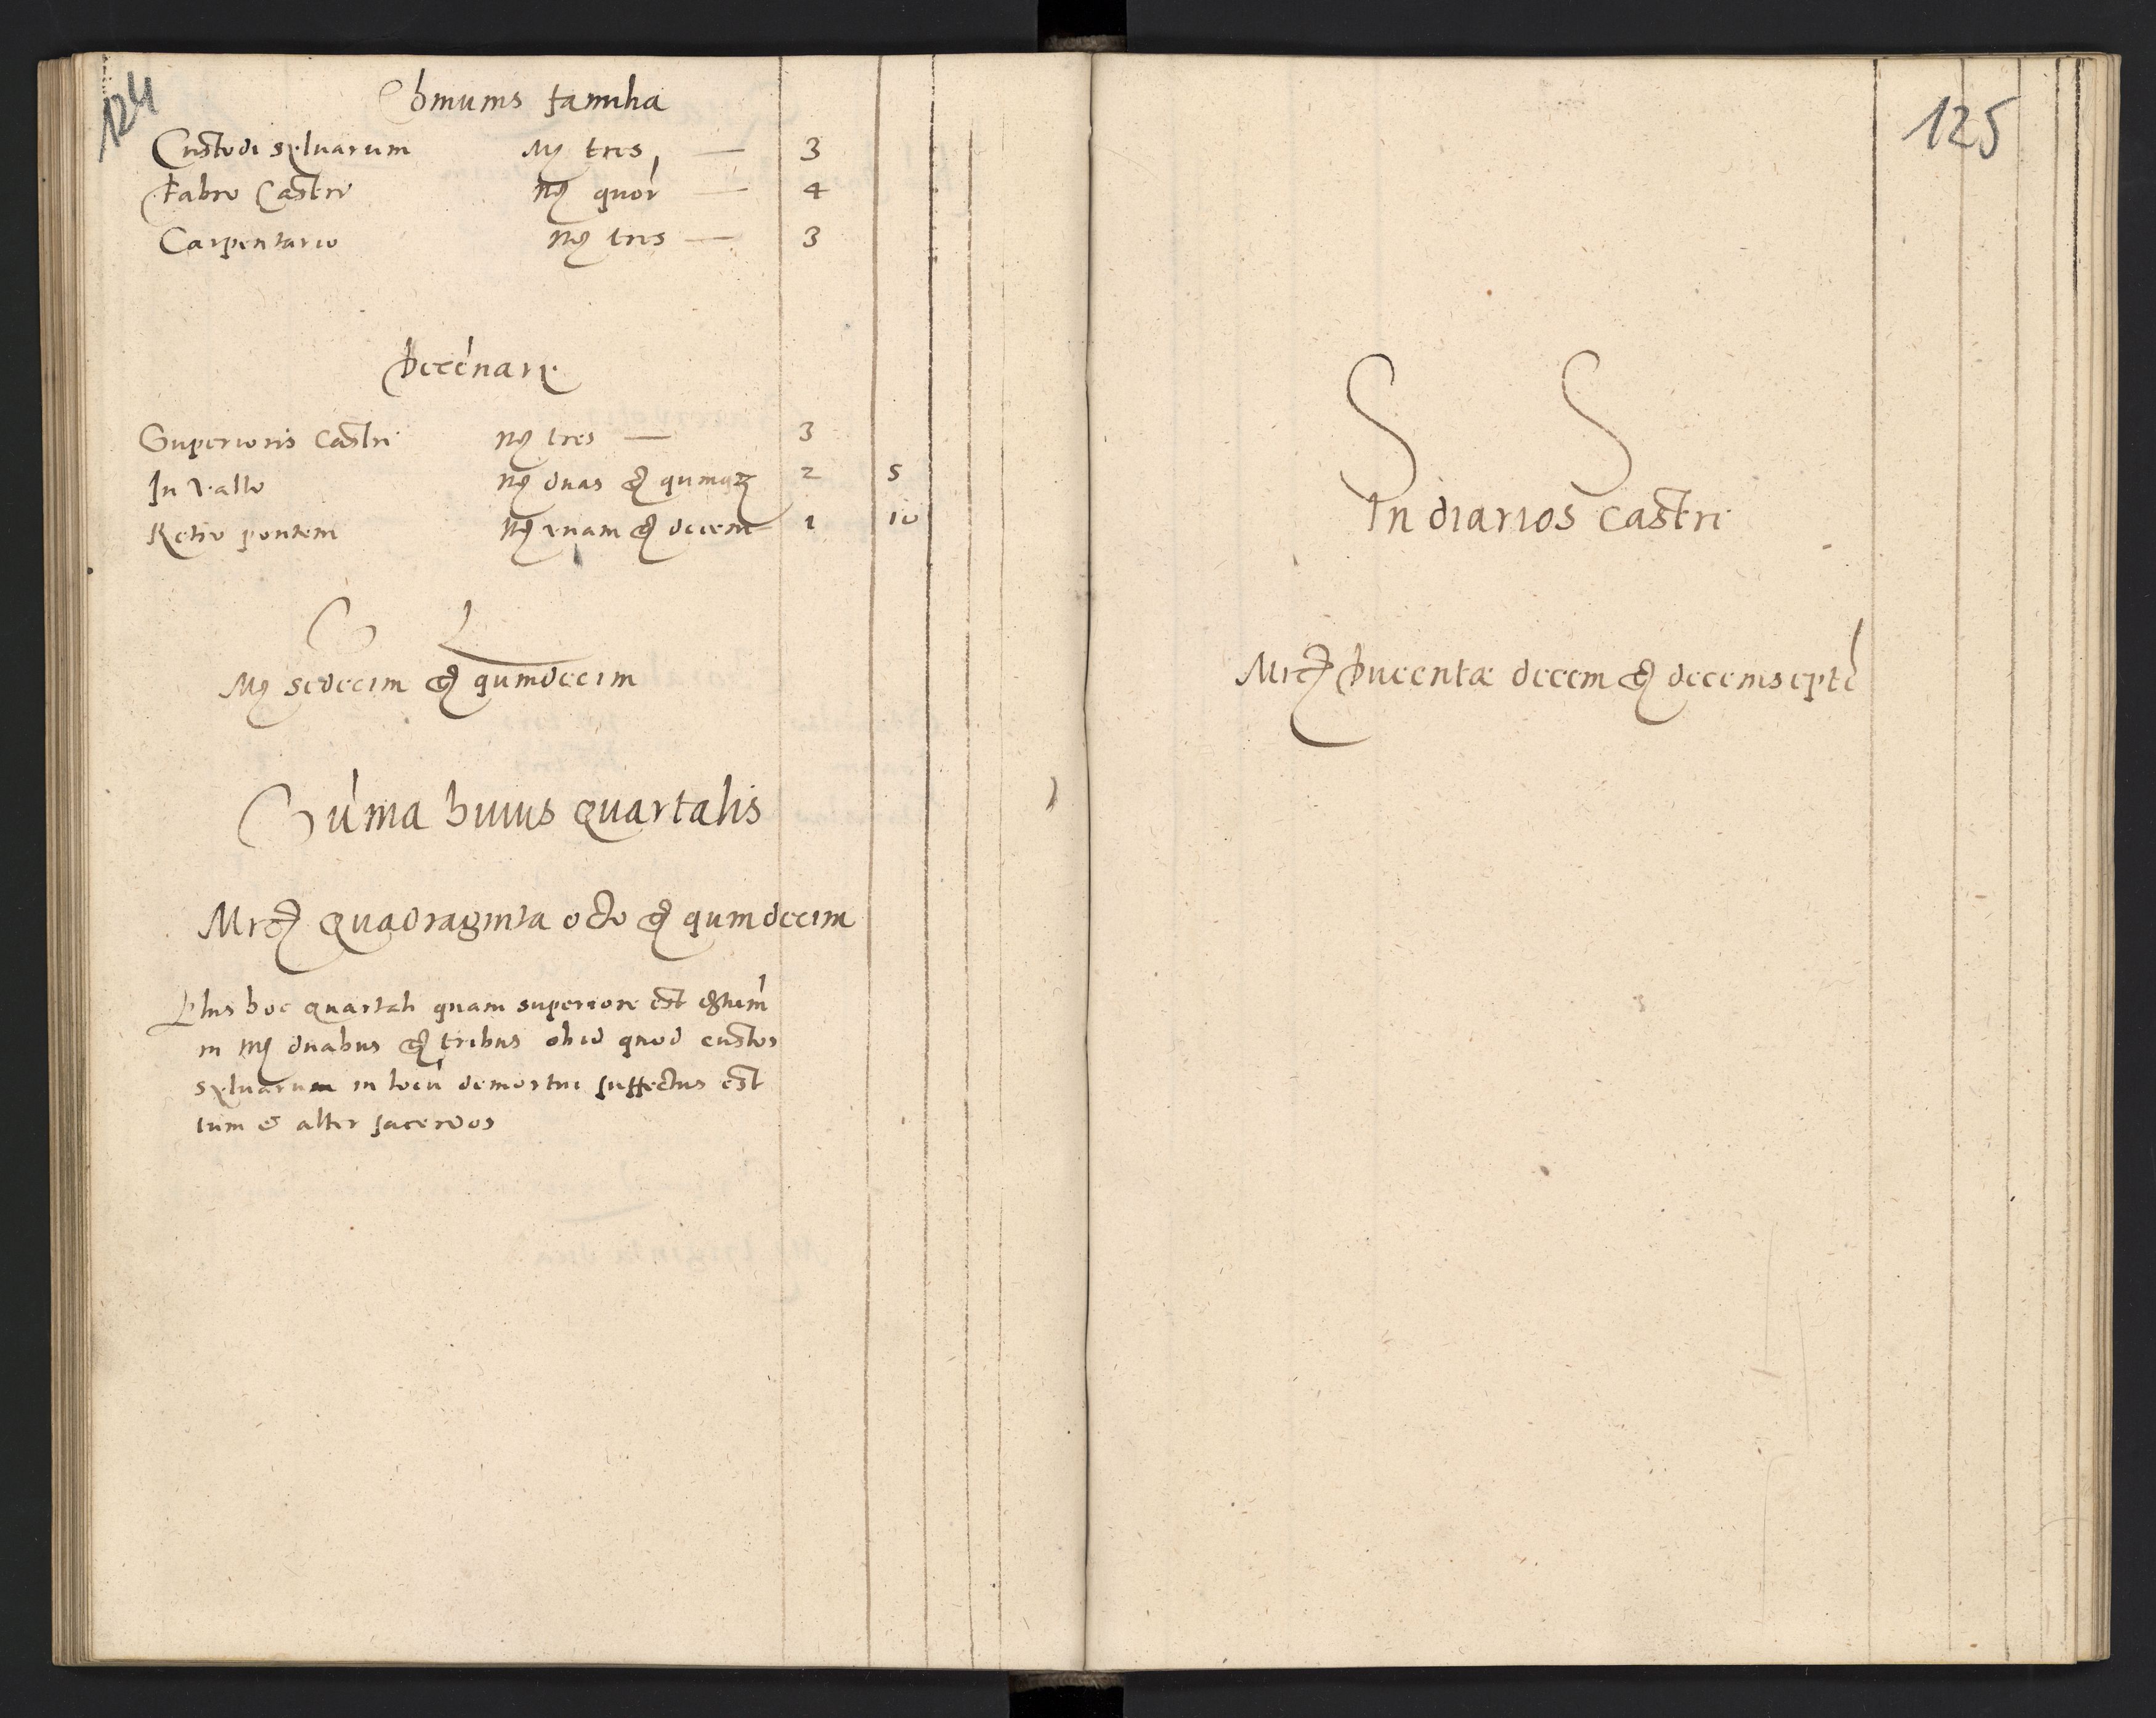 124
Omnius familia
Custodi sylvarum mr tres — 3
Fabro Castri mr quor — 4
Carpentario mr tres — 3
Decenarii
Superioris Castri mr tres — 3
In vallo mr duas gr quinqz 2 5
Retro pontem mr unam gr decem 1 10
S L
Mr sedecim gr quindecim
Suma huius quartalis
Mrc quadraginta octo gr quindecim
Plus hoc quartali quam superiore est
in mr duabus gr tribus ob id quod custos
sylvarum in locu demortui suffectus est
tum et alter sacerdos
125
S S
In diarios castri
Mrc Ducentæ decem gr decemsepte